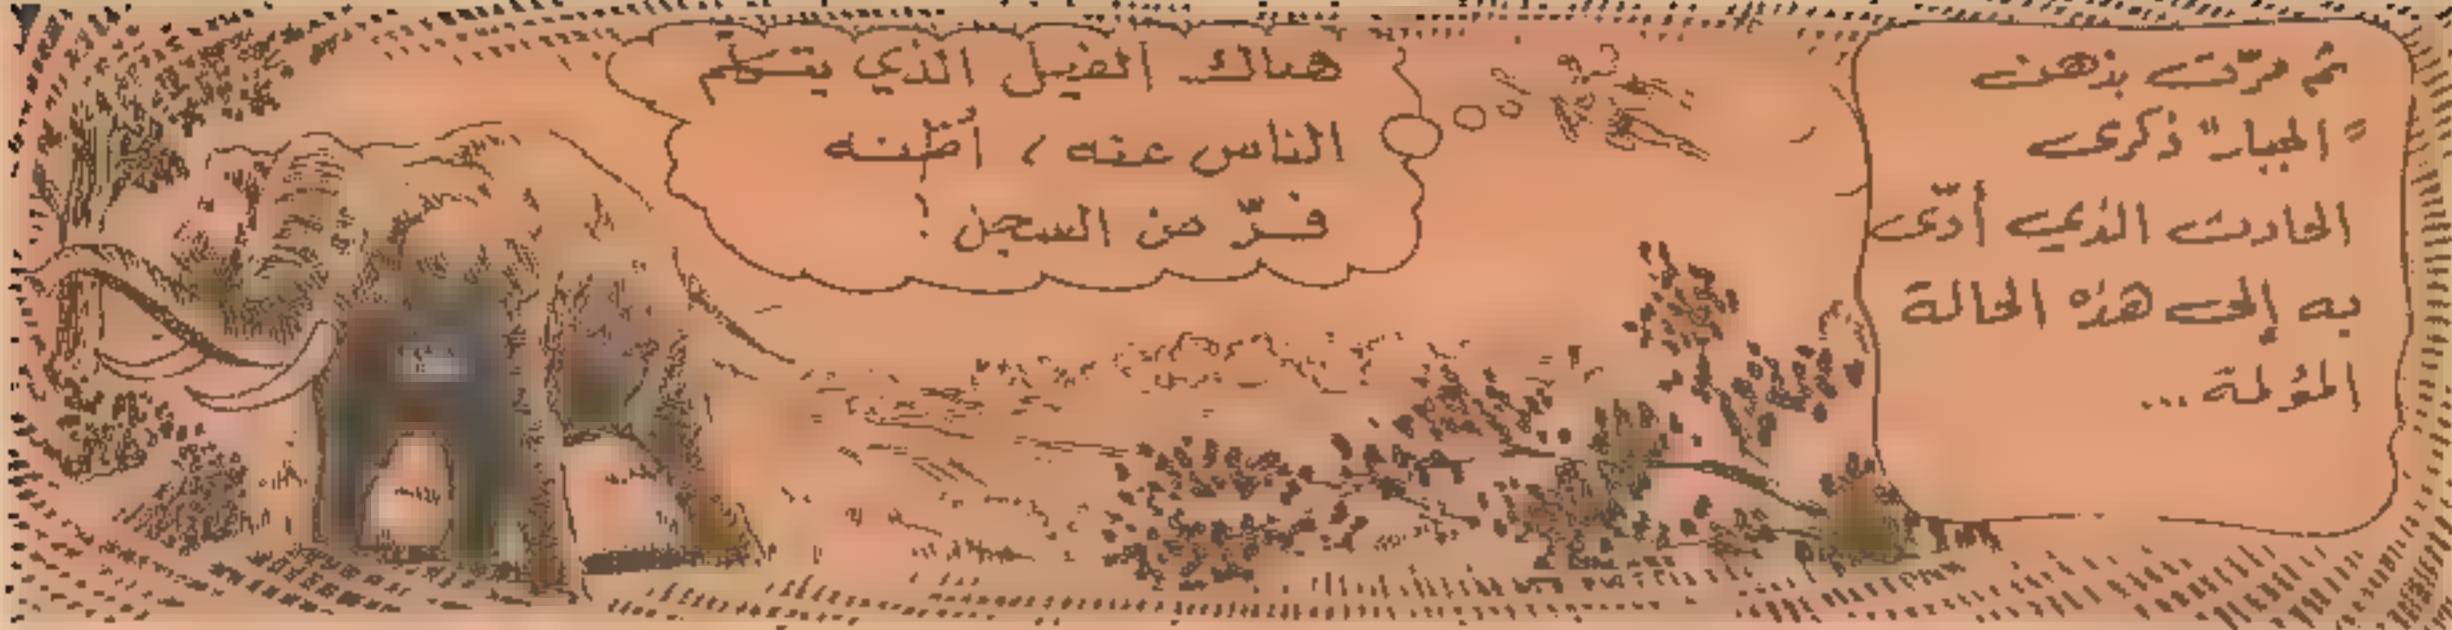 ثم مرّت بذهن
"الجبار" ذكرى
الحادث الذي أدّى
به إلى هذه الحالة
المؤلمة...
هناك الفيل الذي يتكلم
الناس عنه، أظنه
فرّ من السجن!